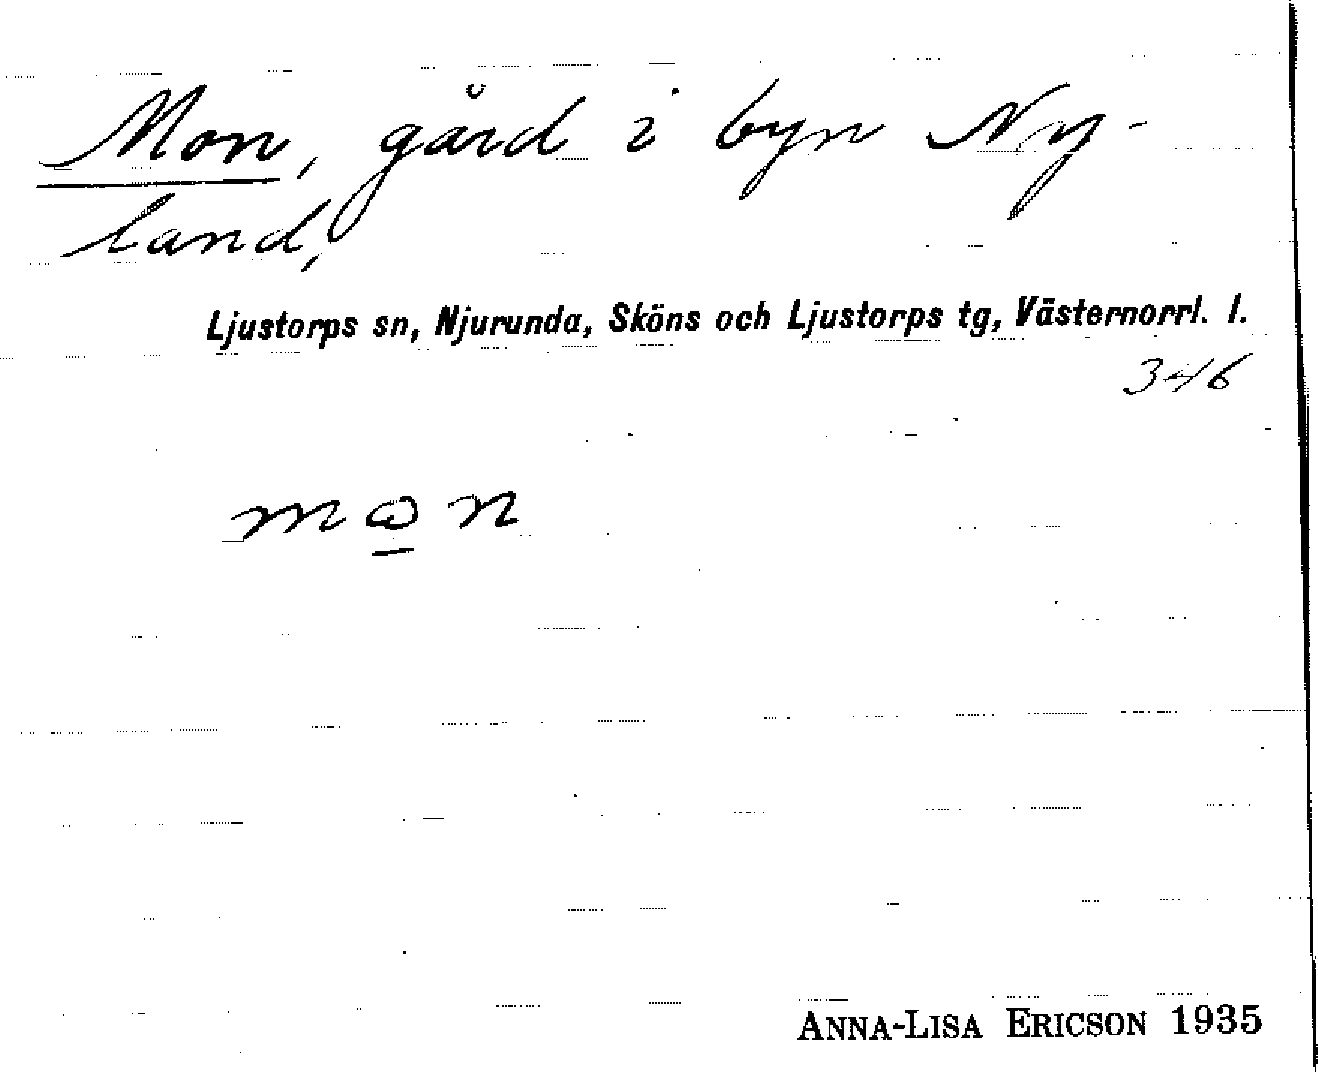 Mon, gård i byn Ny-
land,
Ljustorps sn, Njurunda, Sköns och Ljustorps tg, Västernorrl. l.
346
mɷn
ANNA-LISA ERICSON 1935